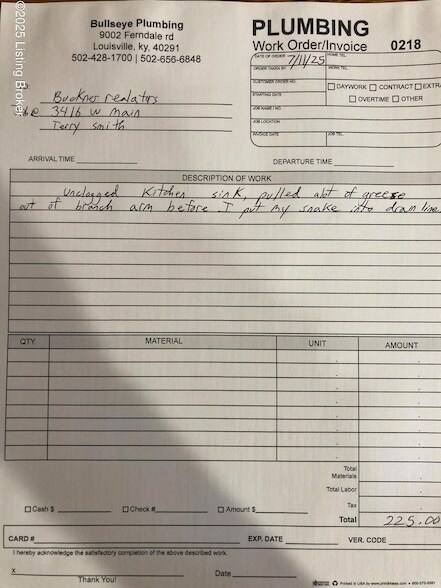 ©2025 Listing Broker
Bullseye Plumbing
9002 Ferndale rd
Louisville, ky, 40291
502-428-1700 | 502-656-6848
PLUMBING
Work Order/Invoice 0218
DATE OF ORDER 7/11/25 HOME TEL.
ORDER TAKEN BY WORK TEL.
CUSTOMER ORDER NO.
STARTING DATE
DAYWORK CONTRACT EXTRA
OVERTIME OTHER
JOB NAME / NO.
JOB LOCATION
INVOICE DATE JOB TEL.
Buckner realators
3416 W main
Terry Smith
ARRIVAL TIME DEPARTURE TIME
DESCRIPTION OF WORK
Unclogged Kitchen sink, pulled alot of greese
out of branch arm before I put my snake into drain line
QTY. MATERIAL UNIT AMOUNT
Total Materials
Total Labor
Tax
Cash $ Check # Amount $
Total 225.00
CARD # EXP. DATE VER. CODE
I hereby acknowledge the satisfactory completion of the above described work.
X Date
Thank You!